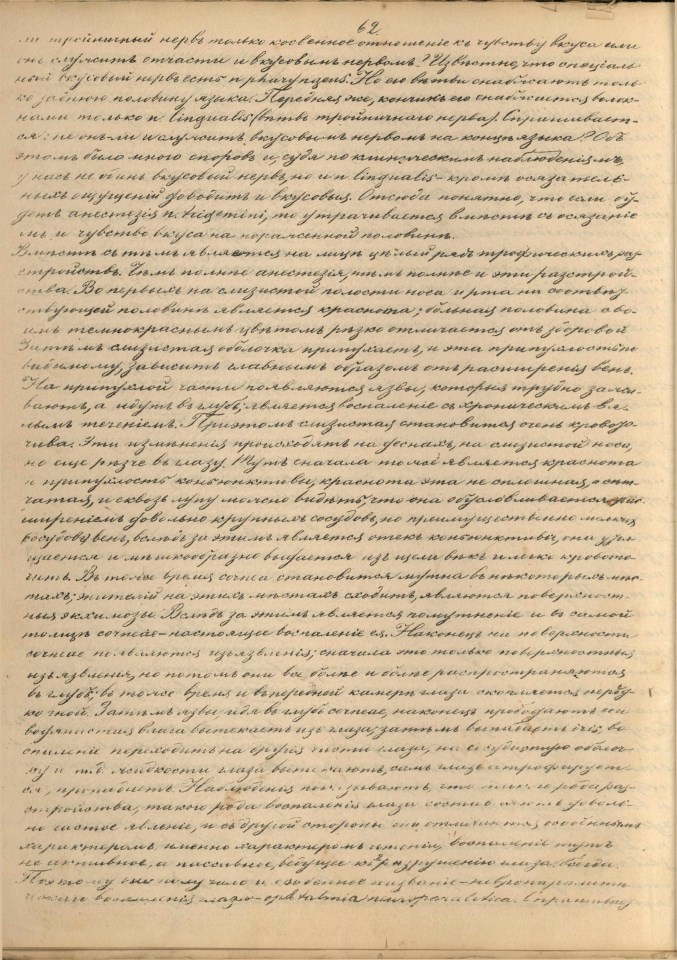 62.
ли тройничный нервъ только косвенное отношеніе къ чувству вкуса или
онъ служитъ отчасти и вкусовымъ нервомъ? Извѣстно, что спеціаль-
ный вкусовый нервъ есть n. pharyngeus. Но его вѣтви снабжаютъ толь-
ко заднюю половину языка. Передняя же, кончикъ его снабжается волок-
нами только n. lingualis (вѣтвь тройничнаго нерва). Спрашивает-
ся: не онъ-ли и служитъ вкусовымъ нервомъ на концѣ языка? Объ
этомъ было много споровъ и, судя по клиническимъ наблюденіямъ,
у насъ не одинъ вкусовый нервъ, но и n lingualis - кромѣ осязатель-
ныхъ ощущеній доводитъ и вкусовыя. Отсюда понятно, что если
детъ анестезія n. trigemini, то утрачивается вмѣстѣ съ осязаніе
мъ и чувство вкуса на пораженной половинѣ.
Вмѣстѣ съ тѣмъ является на лицѣ цѣлый рядъ трофическихъ раз
стройствъ. Чѣмъ полнѣе анестезія, тѣмъ полнѣе и эти разстрой-
ства. Во первыхъ на слизистой полости носа и рта на соотвѣт
ствующей половинѣ является краснота; больная половина сво-
имъ темнокраснымъ цвѣтомъ рѣзко отличается отъ здоровой
Затѣмъ слизистая оболочка припухаетъ, и эта припухлость по
видимому, зависитъ главнымъ образомъ отъ расширенія венъ.
На припухлой части появляются язвы, которыя трудно зажи-
ваютъ, а идутъ въ глубь; является воспаленіе съ хроническимъ вя-
лымъ теченіемъ. При этомъ слизистая становится очень кровото-
чива. Эти измѣненія происходятъ на деснахъ, на слизистой носа,
но еще рѣзче въ глазу. Тутъ сначала тоже является краснота
и припухлость конъюнктивы, краснота эта не сплошная, а сѣт-
чатая, и сквозь лупу можно видѣть, что она обусловливается рас
ширеніемъ довольно крупныхъ сосудовъ, но преимущественно мелкихъ
сосудовъ венъ, вслѣдъ за этимъ является отекъ конъюнктивы, она
щается и мѣшкообразно выдается изъ щели вѣкъ и легко кровото-
читъ. Въ тоже время cornea становится мутна въ нѣкоторыхъ мѣс
тахъ; эпителій на этихъ мѣстахъ сходитъ, являются поверхност-
ныя экхимозы. Вслѣдъ за этимъ является помутнѣніе и въ самой
толщѣ corneae - настоящее воспаленіе ея. Наконецъ на поверхности
corneae появляются изъязвленія; сначала это только поверхностныя
изъязвленія, но потомъ они все болѣе и болѣе распространяются
въ глубь; въ тоже время и въ передней камерѣ глаза скопляется
гной. Затѣмъ язвы, идя въ глубь corneae, наконецъ прободаютъ ея
водянистая влага вытекаетъ изъ глаза; затѣмъ выпадаетъ iris, во
спаленіе переходитъ на другія части глаза, на сосудистую оболоч-
ку и т.д. жидкости глаза вытекаютъ, самъ глазъ атрофирует-
ся, пропадаетъ. Наблюденія показываютъ, что рода раз-
стройства, такого рода воспаленія глаза составляютъ доволь-
но частое явленіе, и съ другой стороны они отличаются особеннымъ
характеромъ, именно характеромъ теченія; воспаленіе тутъ
не активное, а пассивное, ведущее къ разрушенію глаза всегда.
Поэтому оно получило и особенное названіе - невропаралити
ческаго воспаленія глаза - ophthalmia neuroparalitica. Спрашивает